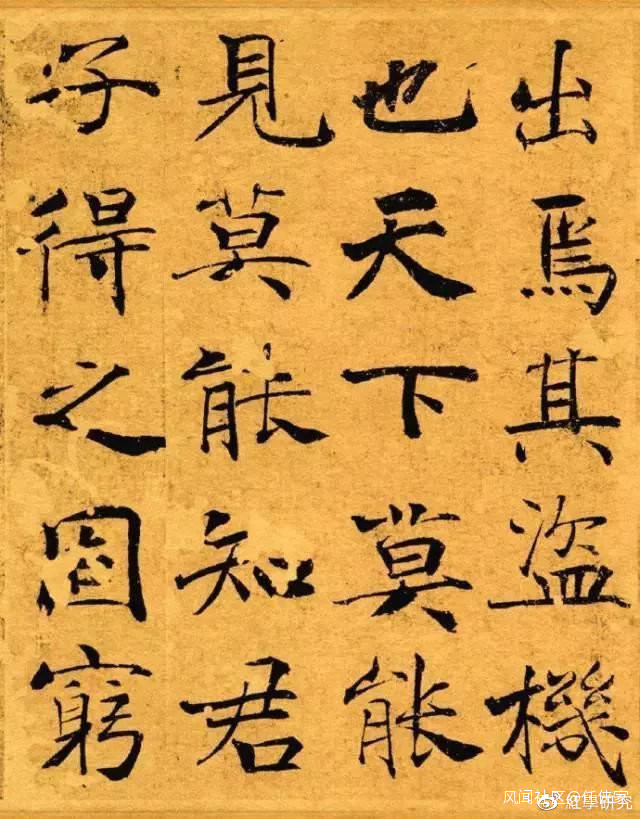 出焉其盜機
也天下莫能
見莫能知君
子得之固窮
风闻社区
@紅學研究